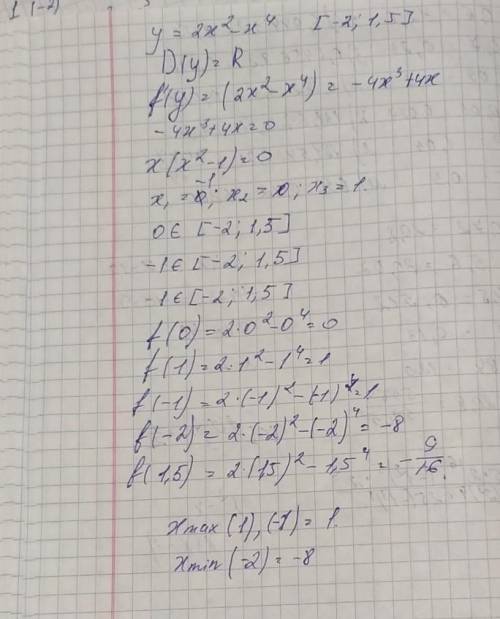 I (-2)
y = 2x² - x⁴ [-2; 1,5]
D(y) = R
f'(y) = (2x² - x⁴) = -4x³+4x
-4x³+4x=0
x(x²-1)=0
x₁ = -1; x₂ = 0; x₃ = 1.
0 ∈ [-2; 1,5]
-1 ∈ [-2; 1,5]
-1 ∈ [-2; 1,5]
f(0) = 2·0² - 0⁴ = 0
f(1) = 2·1² - 1⁴ = 1
f(-1) = 2·(-1)² - (-1)⁴ = 1
f(-2) = 2·(-2)² - (-2)⁴ = -8
f(1,5) = 2·(1,5)² - 1,5⁴ = -9/16.
xmax (1), (-1) = 1.
xmin (-2) = -8